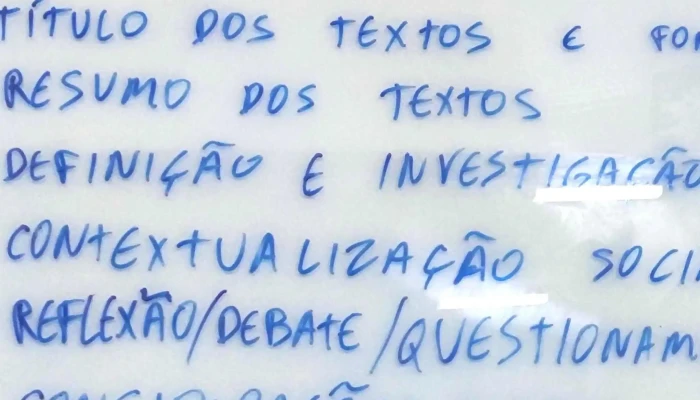 TÍTULO DOS TEXTOS E FON
RESUMO DOS TEXTOS
DEFINIÇÃO E INVESTIGAÇÃO
CONTEXTUALIZAÇÃO SOCI
REFLEXÃO/DEBATE/QUESTIONAM